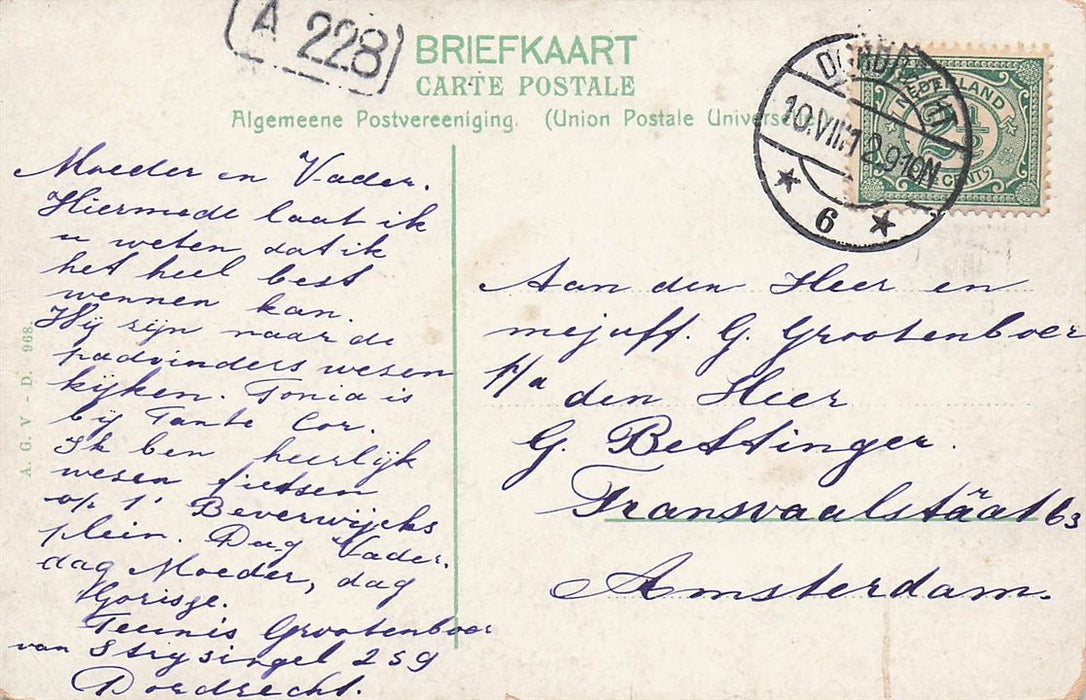 A 228
BRIEFKAART
CARTE POSTALE
Algemeene Postvereeniging. (Union Postale Universelle)
DORDRECHT
10.VIII.12.9-10N
6
NEDERLAND
2½
CENT
Moeder en Vader.
Hiermede laat ik
u weten dat ik
het heel best
wennen kan.
Wij zijn naar de
padvinders wezen
kijken. Tonia is
bij Tante Cor.
Ik ben heerlijk
wezen fietsen
op 't Beverwijcks
plein. Dag Vader,
dag Moeder, dag
Gorisje.
Teunis Grootenboer
van Strijsingel 259
Dordrecht.
Aan den Heer en
mejuff. G. Grootenboer
p/a den Heer
G. Bettinger.
Transvaalstraat 63
Amsterdam.
A. G. V. - D. 968.